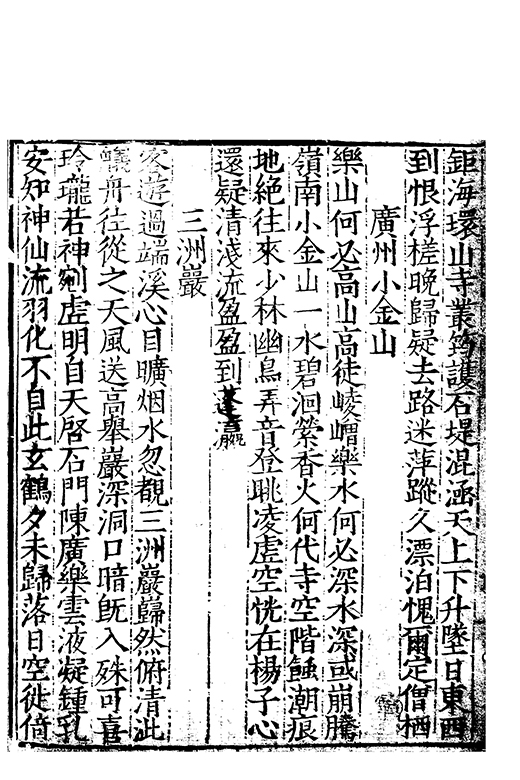 鉅海環山寺叢筠護石堤混涵天上下升墜日東西
到恨浮槎晚歸疑去路迷萍蹤久漂泊愧爾定僧栖
廣州小金山
樂山何必高山高徒崚嶒樂水何必深水深或崩騰
嶺南小金山一水碧洄縈香火何代寺空階蝕潮痕
地絶往來少林幽鳥弄音登眺凌虚空恍在楊子心
還疑清淺流盈盈到蓬瀛
三洲巖
客遊過端溪心目曠烟水忽覩三洲巖巋然俯清泚
艤舟往從之天風送高舉巖深洞口暗旣入殊可喜
玲瓏若神剜虚明自天啓石門陳廣樂雲液凝鍾乳
安知神仙流羽化不自此玄鶴夕未歸落日空徙倚